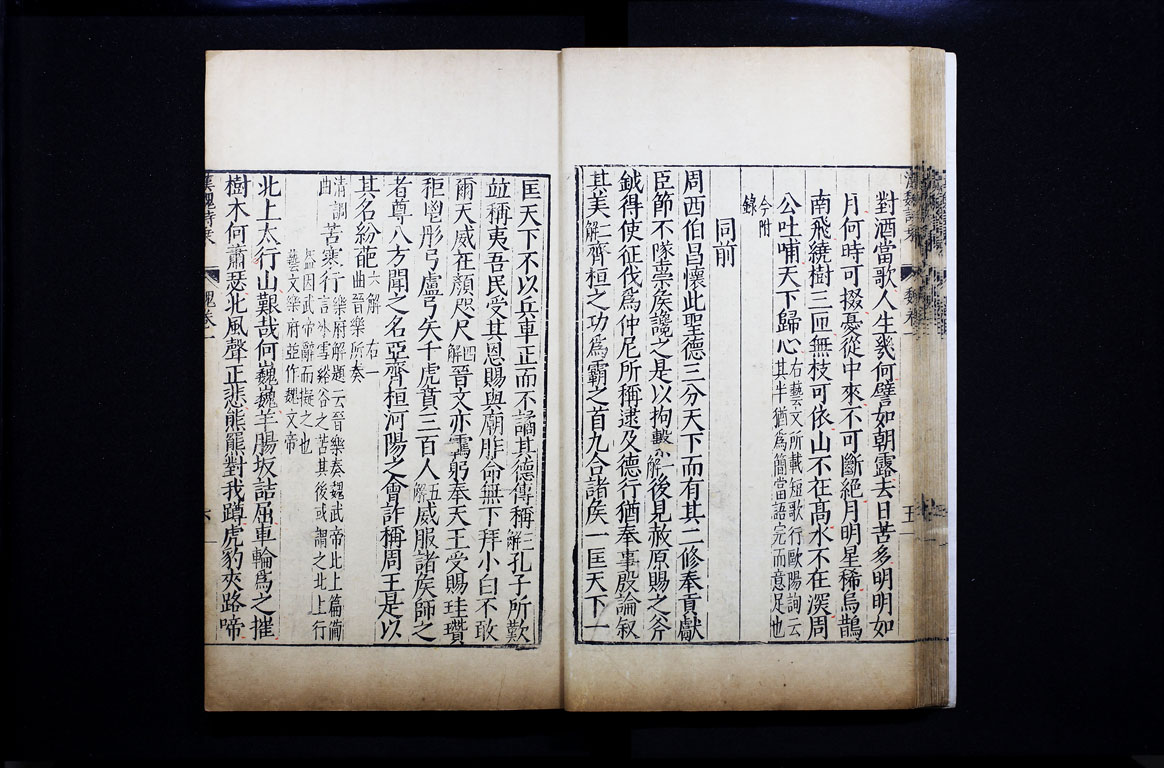 對酒當歌人生幾何譬如朝露去日苦多明明如
月何時可掇憂從中來不可斷絕月明星稀烏鵲
南飛繞樹三匝無枝可依山不在髙水不在深周
公吐哺天下歸心右藝文所載短歌行歐陽詢云其半猶為簡當語完而意足也
今附
錄
同前
周西伯昌懷此聖德三分天下而有其二修奉貢獻
臣節不隊崇矦讒之是以拘繫一解後見赦原賜之斧
鉞得使征伐爲仲尼所稱逮及德行猶奉事殷論叙
其美二解齊桓之功爲霸之首九合諸矦一匡天下一
匡天下不以兵車正而不譎其德傳稱三解孔子所歎
竝稱夷吾民受其恩賜與廟胙命無下拜小白不敢
爾天威在顏咫尺四解晉文亦霸躬奉天王受賜珪瓚
秬鬯彤弓盧弓矢千虎賁三百人五解威服諸矦師之
者尊八方聞之名亞齊桓河陽之會詐稱周王是以
其名紛葩六解 右一曲晉樂所奏
清調曲 苦寒行樂府解題云晉樂奏魏武帝北上篇備言冰雪谿谷之苦其後或謂之北上行
葢因武帝辭而擬之也
藝文樂府並作魏文帝
北上太行山艱哉何巍巍羊腸坂詰屈車輪爲之摧
樹木何蕭瑟北風聲正悲熊羆對我蹲虎豹夾路啼
漢魏詩乘 魏卷一 六
漢魏詩乘 魏卷一 五